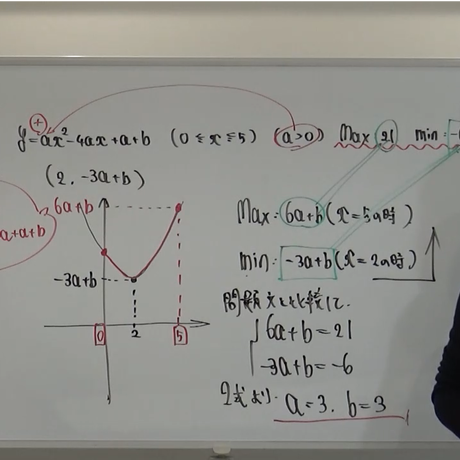 ⊕
y=ax²-4ax+a+b (0≦x≦5) (a>0) Max 21 min -6
(2, -3a+b)
6a+b
a+a+b
-3a+b
0 2 5
Max: 6a+b (x=5の時)
min: -3a+b (x=2の時)
問題文と比較して
6a+b=21
-3a+b=-6
2式より
a=3, b=3